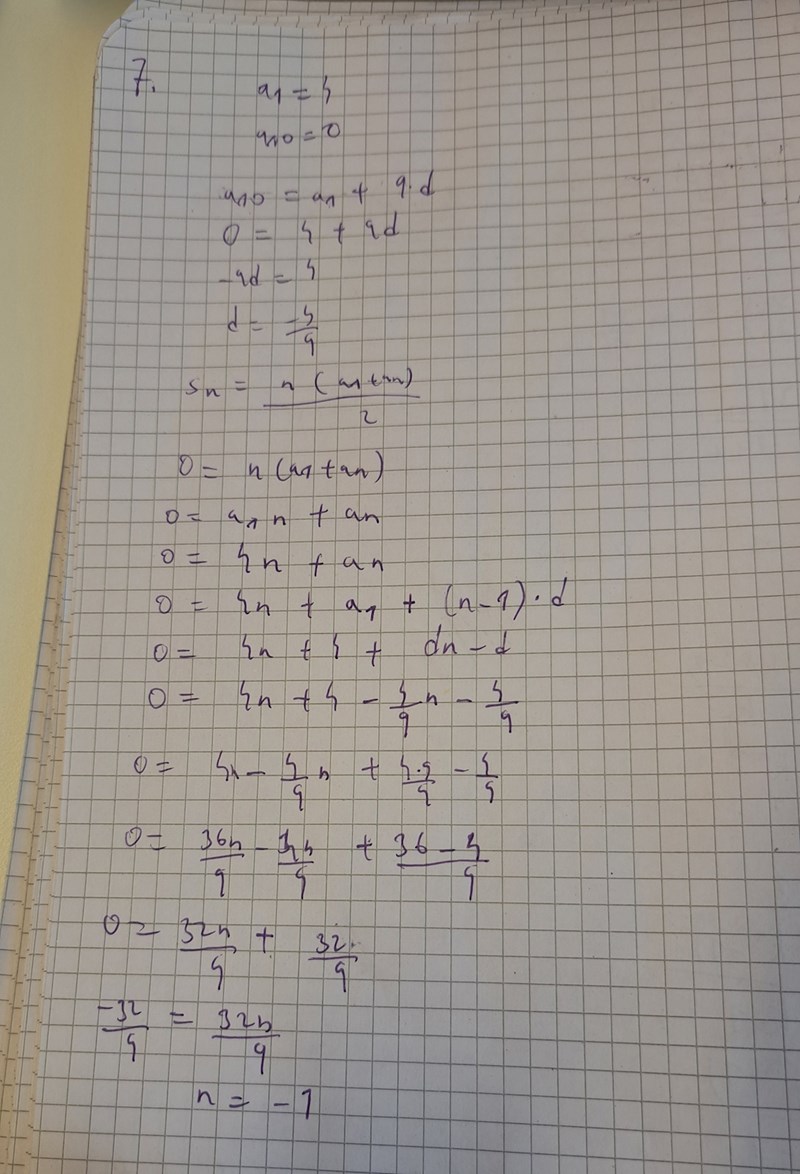 7.
a₁ = 4
a₁₀ = 0
a₁₀ = a₁ + 9·d
0 = 4 + 9d
-9d = 4
d = -4/9
sₙ = n (a₁+aₙ)/2
0 = n(a₁+aₙ)
0 = a₁n + aₙ
0 = 4n + aₙ
0 = 4n + a₁ + (n-1)·d
0 = 4n + 4 + dn - d
0 = 4n + 4 - 4/9 n - 4/9
0 = 4n - 4/9 n + 4·9/9 - 4/9
0 = 36n/9 - 4n/9 + 36-4/9
0 = 32n/9 + 32/9
-32/9 = 32n/9
n = -1